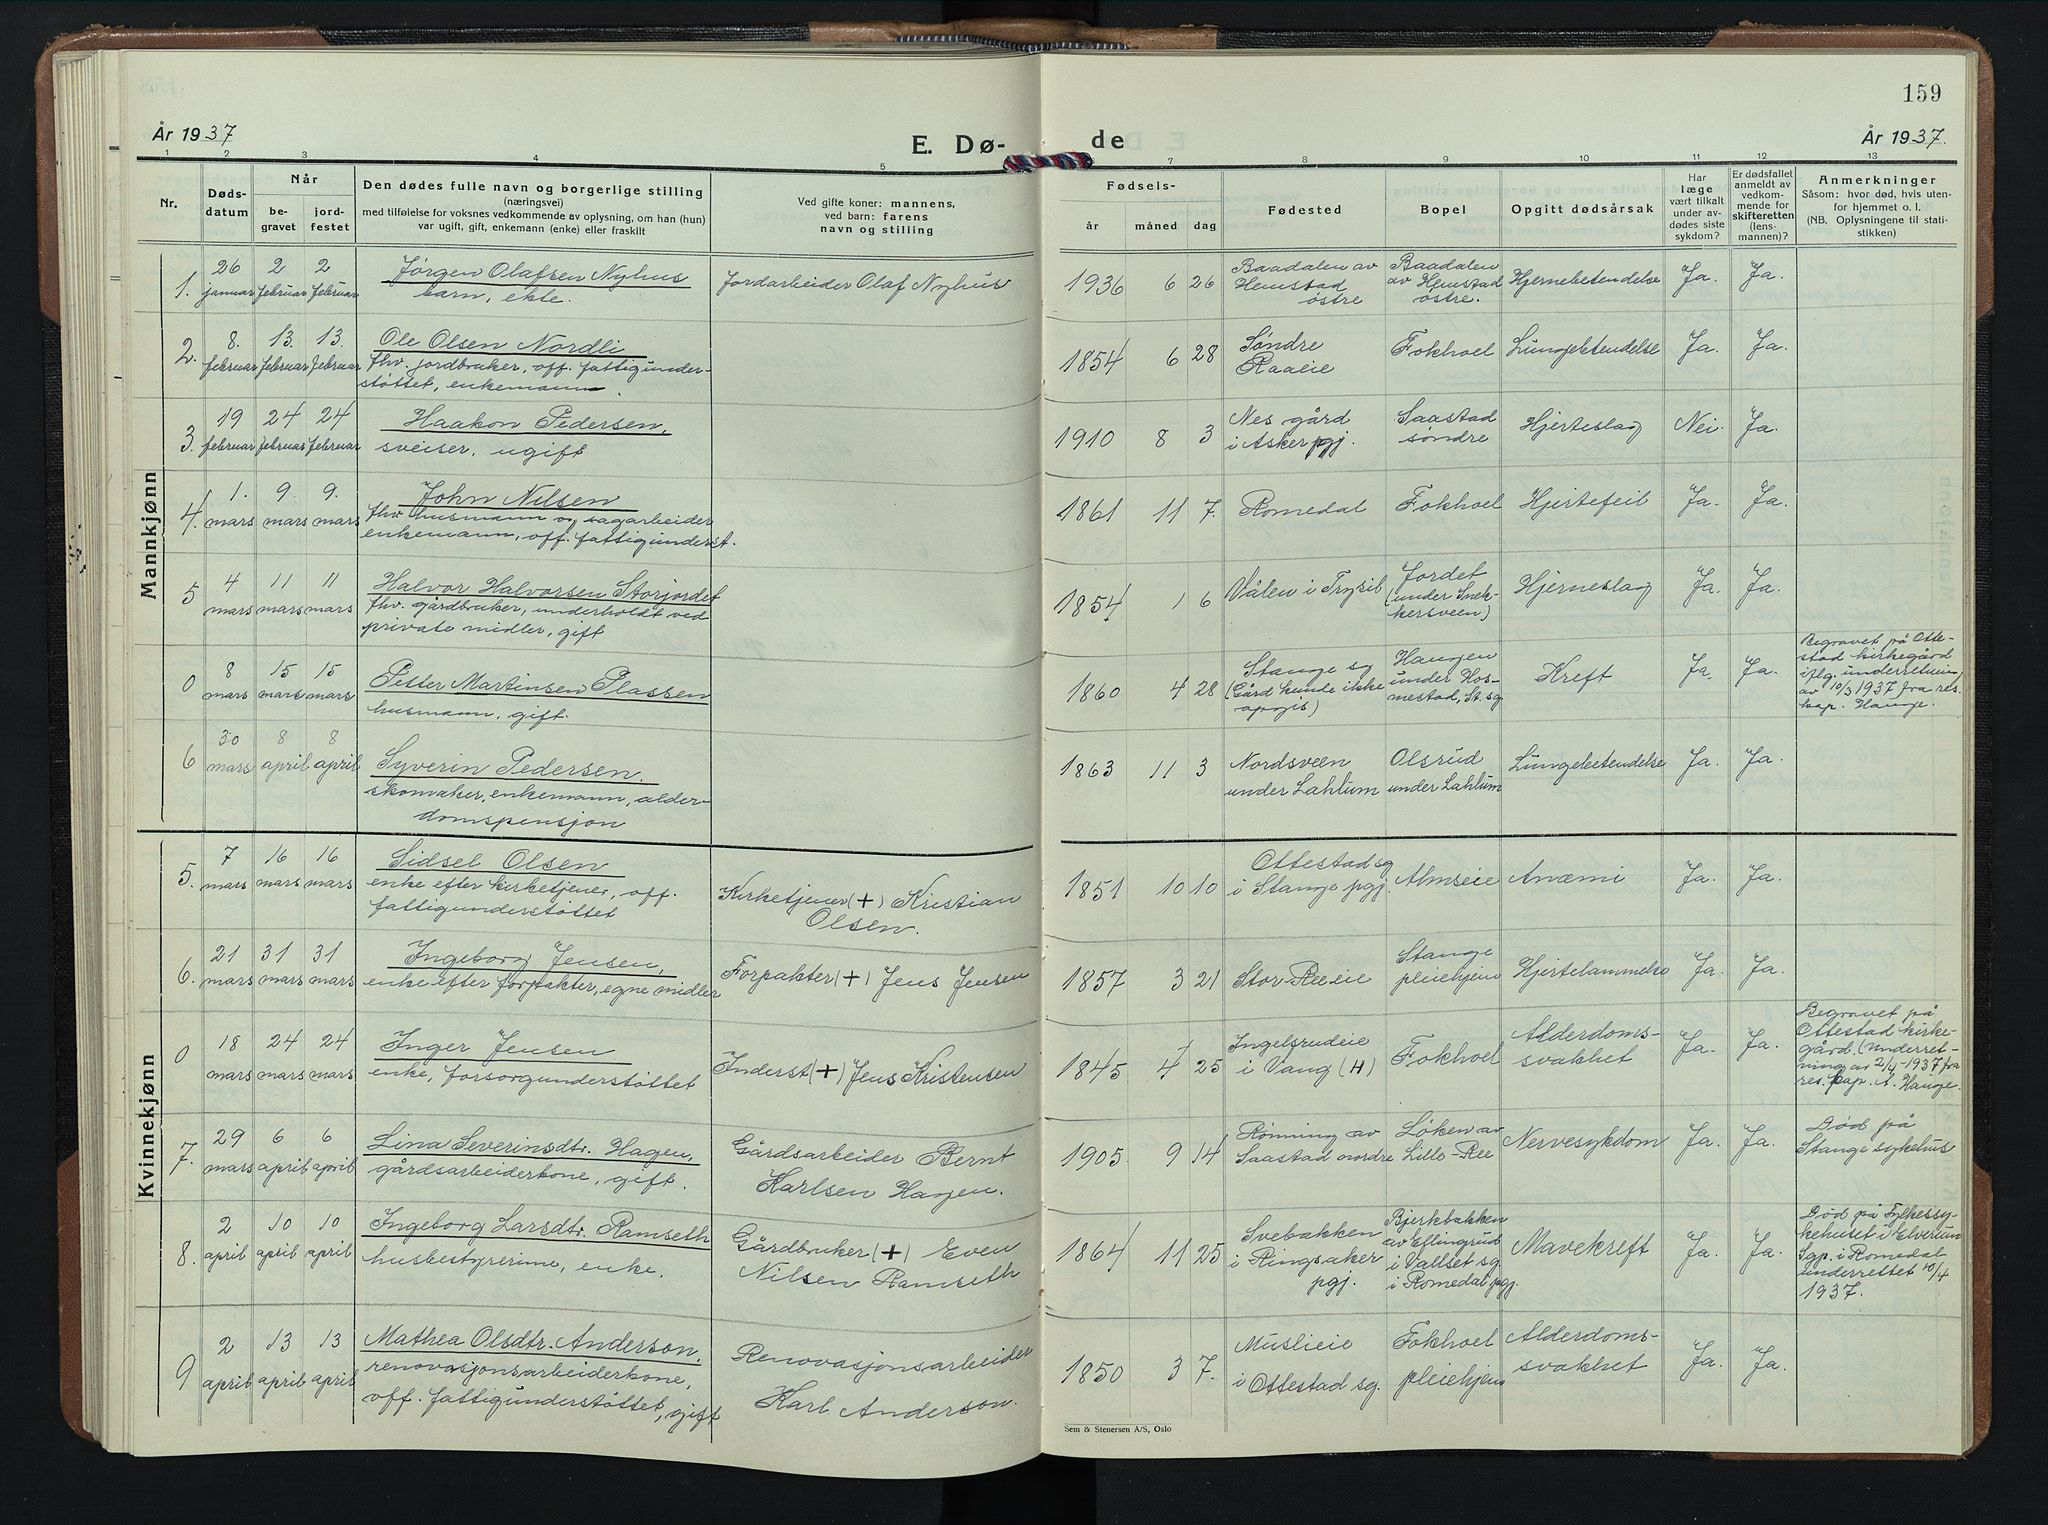 159
År 1937
E. Dø-
de
År 1937.
1 2 3 4 5 7 8 9 10 11 12 13
Nr.
Døds-
datum
Når
be-
gravet
jord-
festet
Den dødes fulle navn og borgerlige stilling
(næringsvei)
med tilføielse for voksnes vedkommende av oplysning, om han (hun)
var ugift, gift, enkemann (enke) eller fraskilt
Ved gifte koner: mannens,
ved barn: farens
navn og stilling
Fødsels-
år måned dag
Fødested
Bopel
Opgitt dødsårsak
Har
læge
vært tilkalt
under av-
dødes siste
sykdom?
Er dødsfallet
anmeldt av
vedkom-
mende for
skifteretten
(lens-
mannen)?
Anmerkninger
Såsom: hvor død, hvis uten-
for hjemmet o. l.
(NB. Oplysningene til stati-
stikken)
Mannkjønn
1.
26
januar
2
februar
2
februar
Jørgen Olafsen Nyhus
barn, ekte.
Jordarbeider Olaf Nyhus
1936 6 26
Baadalen av
Hemstad
østre
Baadalen
av Hemstad
østre.
Hjernebetendelse
Ja.
Ja.
2.
8.
februar
13.
februar
13.
februar
Ole Olsen Nordli
fhv. jordbruker, off. fattigunder-
støttet, enkemann
1854 6 28
Søndre
Raaeie
Fokhoel
Lungebetendelse
Ja.
Ja.
3.
19
februar
24
februar
24
februar
Haakon Pedersen,
sveiser, ugift
1910 8 3
Nes gård
i Asker pgj.
Saastad
søndre
Hjerteslag
Nei.
Ja.
4.
1.
mars
9.
mars
9.
mars
John Nilsen
fhv. husmann og sagarbeider
enkemann, off. fattigunderst.
1861 11 7.
Romedal
Fokhoel
Hjertefeil
Ja.
Ja.
5
4
mars
11
mars
11
mars
Halvor Halvorsen Storjordet
fhv. gårdbruker, underholdt ved
private midler, gift
1854 1 6
Vålen i Trysil
Jordet
(under Snek-
kersveen)
Hjerneslag
Ja.
Ja.
0
8
mars
15
mars
15
mars
Petter Martinsen Plassen
husmann, gift.
1860 4 28
Stange sg
(Gård kunde ikke
opgis)
Haugen
under Hos-
mestad, St. sg
Kreft
Ja.
Ja.
Begravet på Otte-
stad kirkegård
iflg. underretning
av 10/3 1937 fra res.
kap. Hauge.
6
30
mars
8
april
8
april
Syverin Pedersen,
skomaker, enkemann, alder-
domspensjon
1863 11 3
Nordsveen
under Lahlum
Olsrud
under Lahlum
Lungebetendelse
Ja.
Ja.
Kvinnekjønn
5.
7
mars
16
mars
16
mars
Sidsel Olsen
enke efter kirketjener, off.
fattigunderstøttet
Kirketjener (+) Kristian
Olsen.
1851 10 10
Ottestad sg
i Stange pgj.
Almseie
Anæmi
Ja.
Ja.
6.
21
mars
31
mars
31
mars
Ingeborg Jensen,
enke efter forpakter, egne midler
Forpakter (+) Jens Jensen
1857 3 21
Stor-Reeie
Stange
pleiehjem
Hjertelammelse
Ja.
Ja.
0
18
mars
24
mars
24
mars
Inger Jensen
enke, forsorgunderstøttet
Inderst (+) Jens Kristensen
1845 4 25
Ingelsrudeie
i Vang (H)
Fokhoel
Alderdoms-
svakhet
Ja.
Ja.
Begravet på
Ottestad kirke-
gård. (Underret-
ning av 2/4-1937 fra
res. kap. A. Hauge.
7.
29
mars
6
april
6
april
Lina Severinsdtr. Hagen,
gårdsarbeiderkone, gift.
Gårdsarbeider Bernt
Karlsen Hagen.
1905 9 14
Rønning av
Saastad nordre
Løken av
Lille-Ree
Nervesykdom
Ja.
Ja.
Død på
Stange sykehus
8.
2
april
10
april
10
april
Ingeborg Larsdtr. Ramseth
husbestyrerinne, enke.
Gårdbruker (+) Even
Nilsen Ramseth
1864 11 25
Svebakken
i Ringsaker
pgj.
Bjerkbakken
av Ellingrud
i Vallset sg.
i Romedal pgj.
Mavekreft
Ja.
Ja.
Død på Fylkessy-
kehuset i Elverum
Sgp. i Romedal
underrettet 10/4
1937.
9
2
april
13
april
13
april
Mathea Olsdtr. Anderson,
renovasjonsarbeiderkone,
off. fattigunderstøttet, gift
Renovasjonsarbeider
Karl Anderson.
1850 3 7.
Muslieie
i Ottestad sg.
Fokhoel
pleiehjem
Alderdoms-
svakhet
Ja.
Ja.
Sem & Stenersen A/S, Oslo